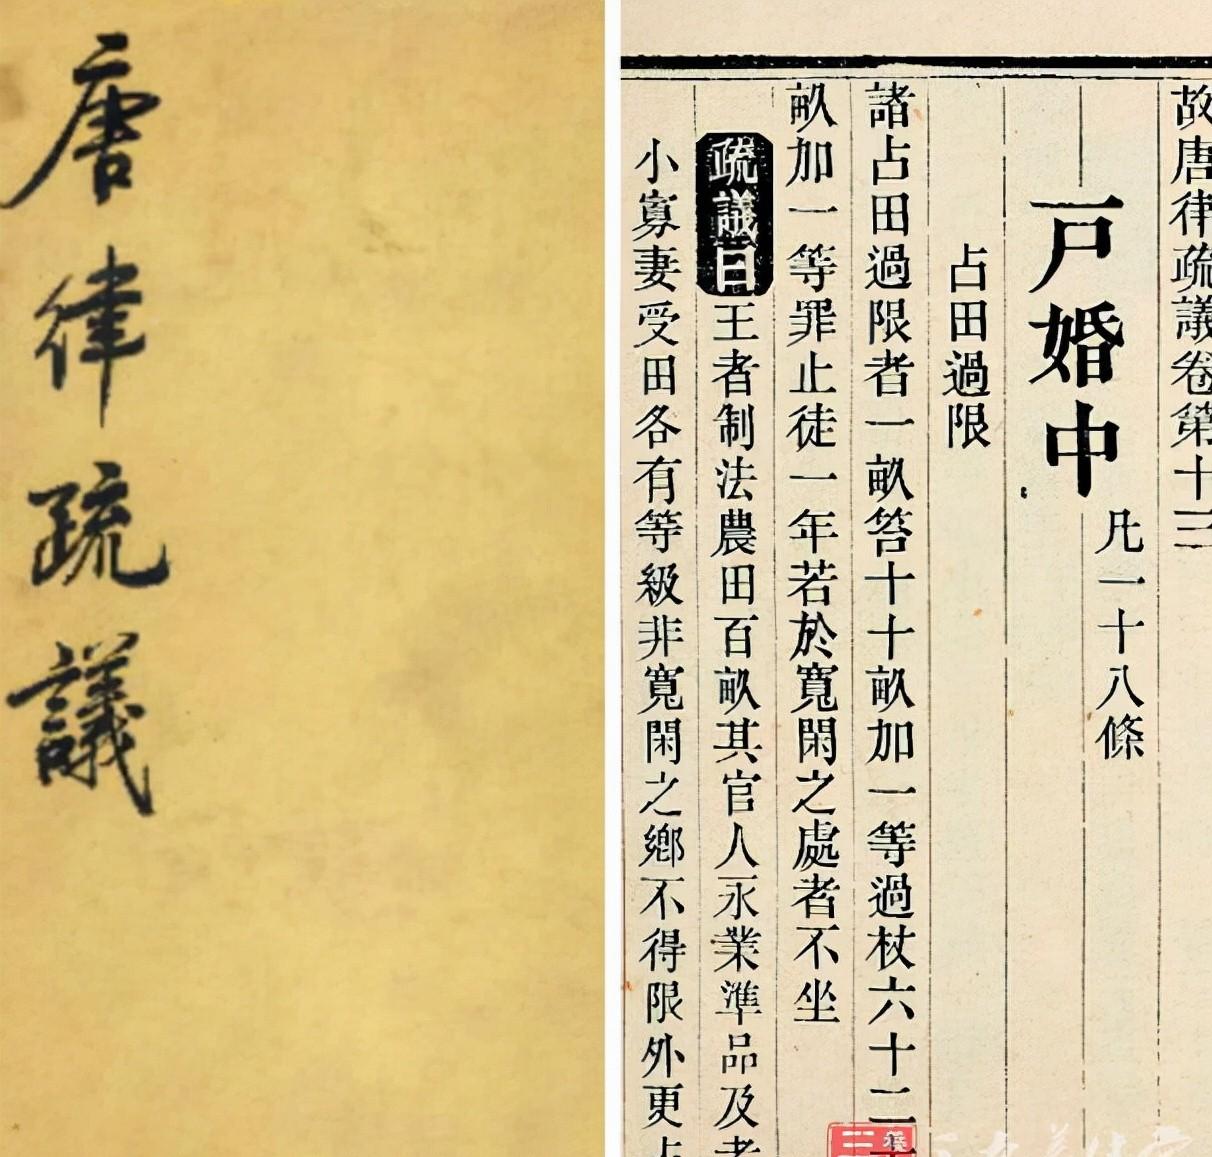 唐律疏議
故唐律疏議卷第十三
戸婚中 凡一十八條
占田過限
諸占田過限者一畝笞十十畝加一等過杖六十二十
畝加一等罪止徒一年若於寬閑之處者不坐
疏議曰王者制法農田百畝其官人永業準品及老
小寡妻受田各有等級非寬閑之鄉不得限外更占